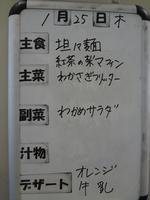 1月25日木
主食 坦々麺
紅茶の葉マフィン
主菜 わかさぎフリッター
副菜 わかめサラダ
汁物
デザート オレンジ
牛乳